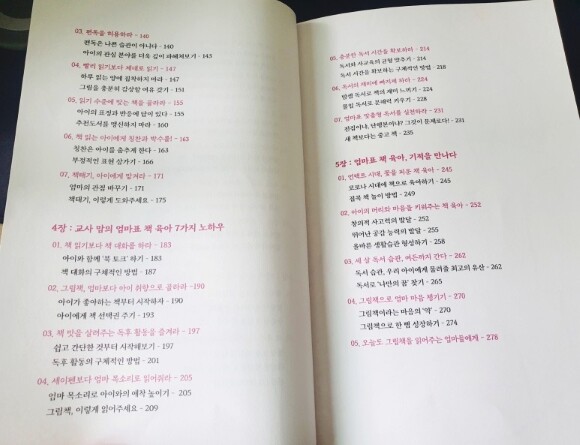 03. 편독을 허용하라 - 140
편독은 나쁜 습관이 아니다 - 140
아이의 관심 분야를 더욱 깊이 파헤쳐보기 - 145
04. 빨리 읽기보다 제대로 읽기 - 147
하루 읽는 양에 집착하지 마라 - 147
그림을 충분히 감상할 여유 갖기 - 151
05. 읽기 수준에 맞는 책을 골라라 - 155
아이의 표정과 반응에 답이 있다 - 155
추천도서를 맹신하지 마라 - 160
06. 책 읽는 아이에게 칭찬과 박수를! - 163
칭찬은 아이를 춤추게 한다 - 163
부정적인 표현 삼가기 - 166
07. 책태기, 아이에게 맡겨라 - 171
엄마의 관점 바꾸기 - 171
책태기, 이렇게 도와주세요 - 175
4장 : 교사 맘의 엄마표 책 육아 7가지 노하우
01. 책 읽기보다 책 대화를 하라 - 183
아이와 함께 '북 토크' 하기 - 183
책 대화의 구체적인 방법 - 187
02. 그림책, 엄마보다 아이 취향으로 골라라 - 190
아이가 좋아하는 책부터 시작하자 - 190
아이에게 책 선택권 주기 - 193
03. 책 맛을 살려주는 독후 활동을 즐겨라 - 197
쉽고 간단한 것부터 시작해보기 - 197
독후 활동의 구체적인 방법 - 201
04. 세이펜보다 엄마 목소리로 읽어줘라 - 205
엄마 목소리로 아이와의 애착 높이기 - 205
그림책, 이렇게 읽어주세요 - 209
05. 충분한 독서 시간을 확보하라 - 214
독서와 사교육의 균형 맞추기 - 214
독서 시간을 확보하는 구체적인 방법 - 218
06. 독서의 재미에 빠지게 하라 - 224
밤샘 독서로 책의 재미 느끼기 - 224
몰입 독서로 문해력 키우기 - 228
07. 엄마표 맞춤형 독서를 실천하라 - 231
전집이냐, 단행본이냐? 그것이 문제로다! - 231
새 책보다는 중고 책 - 235
5장 : 엄마표 책 육아, 기적을 만나다
01. 언택트 시대, 꽃을 피운 책 육아 - 245
코로나 시대에 책으로 육아하기 - 245
집콕 책 놀이 방법 - 249
02. 아이의 머리와 마음을 키워주는 책 육아 - 252
창의적 사고력의 발달 - 252
뛰어난 공감 능력의 발달 - 255
올바른 생활습관 형성하기 - 258
03. 세 살 독서 습관, 여든까지 간다 - 262
독서 습관, 우리 아이에게 물려줄 최고의 유산 - 262
독서로 '나만의 꿈' 찾기 - 265
04. 그림책으로 엄마 마음 챙기기 - 270
그림책이라는 마음의 '약' - 270
그림책으로 한 뼘 성장하기 - 274
05. 오늘도 그림책을 읽어주는 엄마들에게 - 278